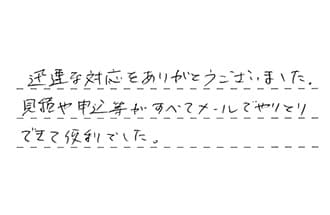 迅速な対応をありがとうございました。
見積や申込等がすべてメールでやりとり
できて便利でした。